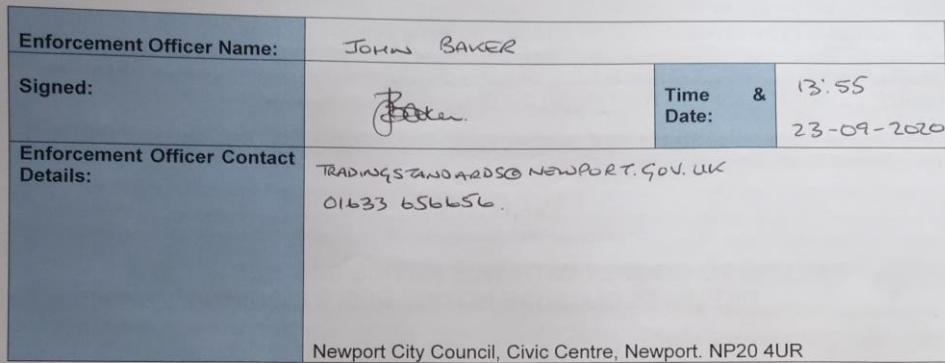 Enforcement Officer Name: JOHN BAKER
Signed: JBaker.
Time & Date: 13:55
23-09-2020
Enforcement Officer Contact Details:
TRADINGSTANDARDS@NEWPORT.GOV.UK
01633 656656.
Newport City Council, Civic Centre, Newport. NP20 4UR